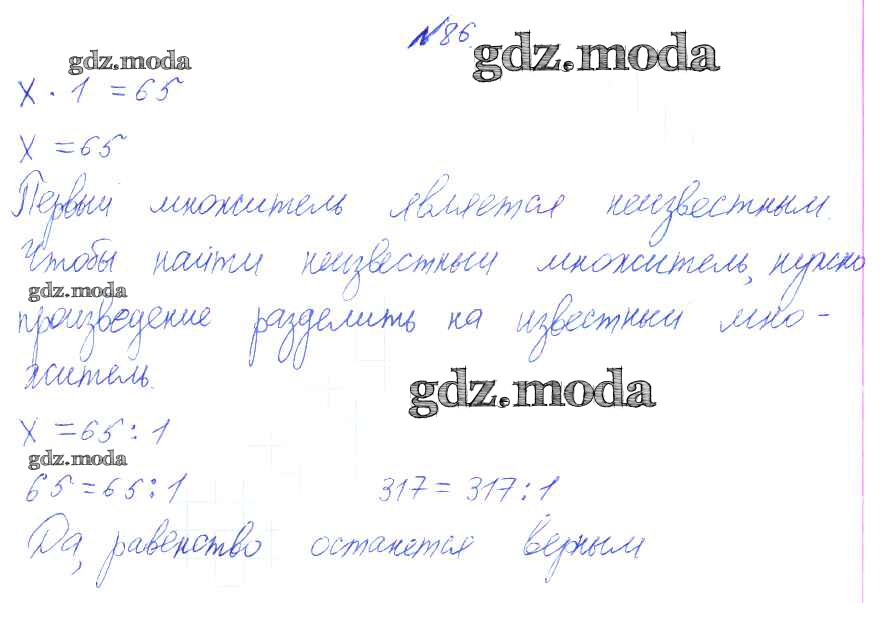 №86.
gdz.moda
gdz.moda
x · 1 = 65
x = 65
Первый множитель является неизвестным.
Чтобы найти неизвестный множитель, нужно
gdz.moda
произведение разделить на известный мно-
житель.
gdz.moda
x = 65 : 1
gdz.moda
65 = 65 : 1 317 = 317 : 1
Да, равенство останется верным